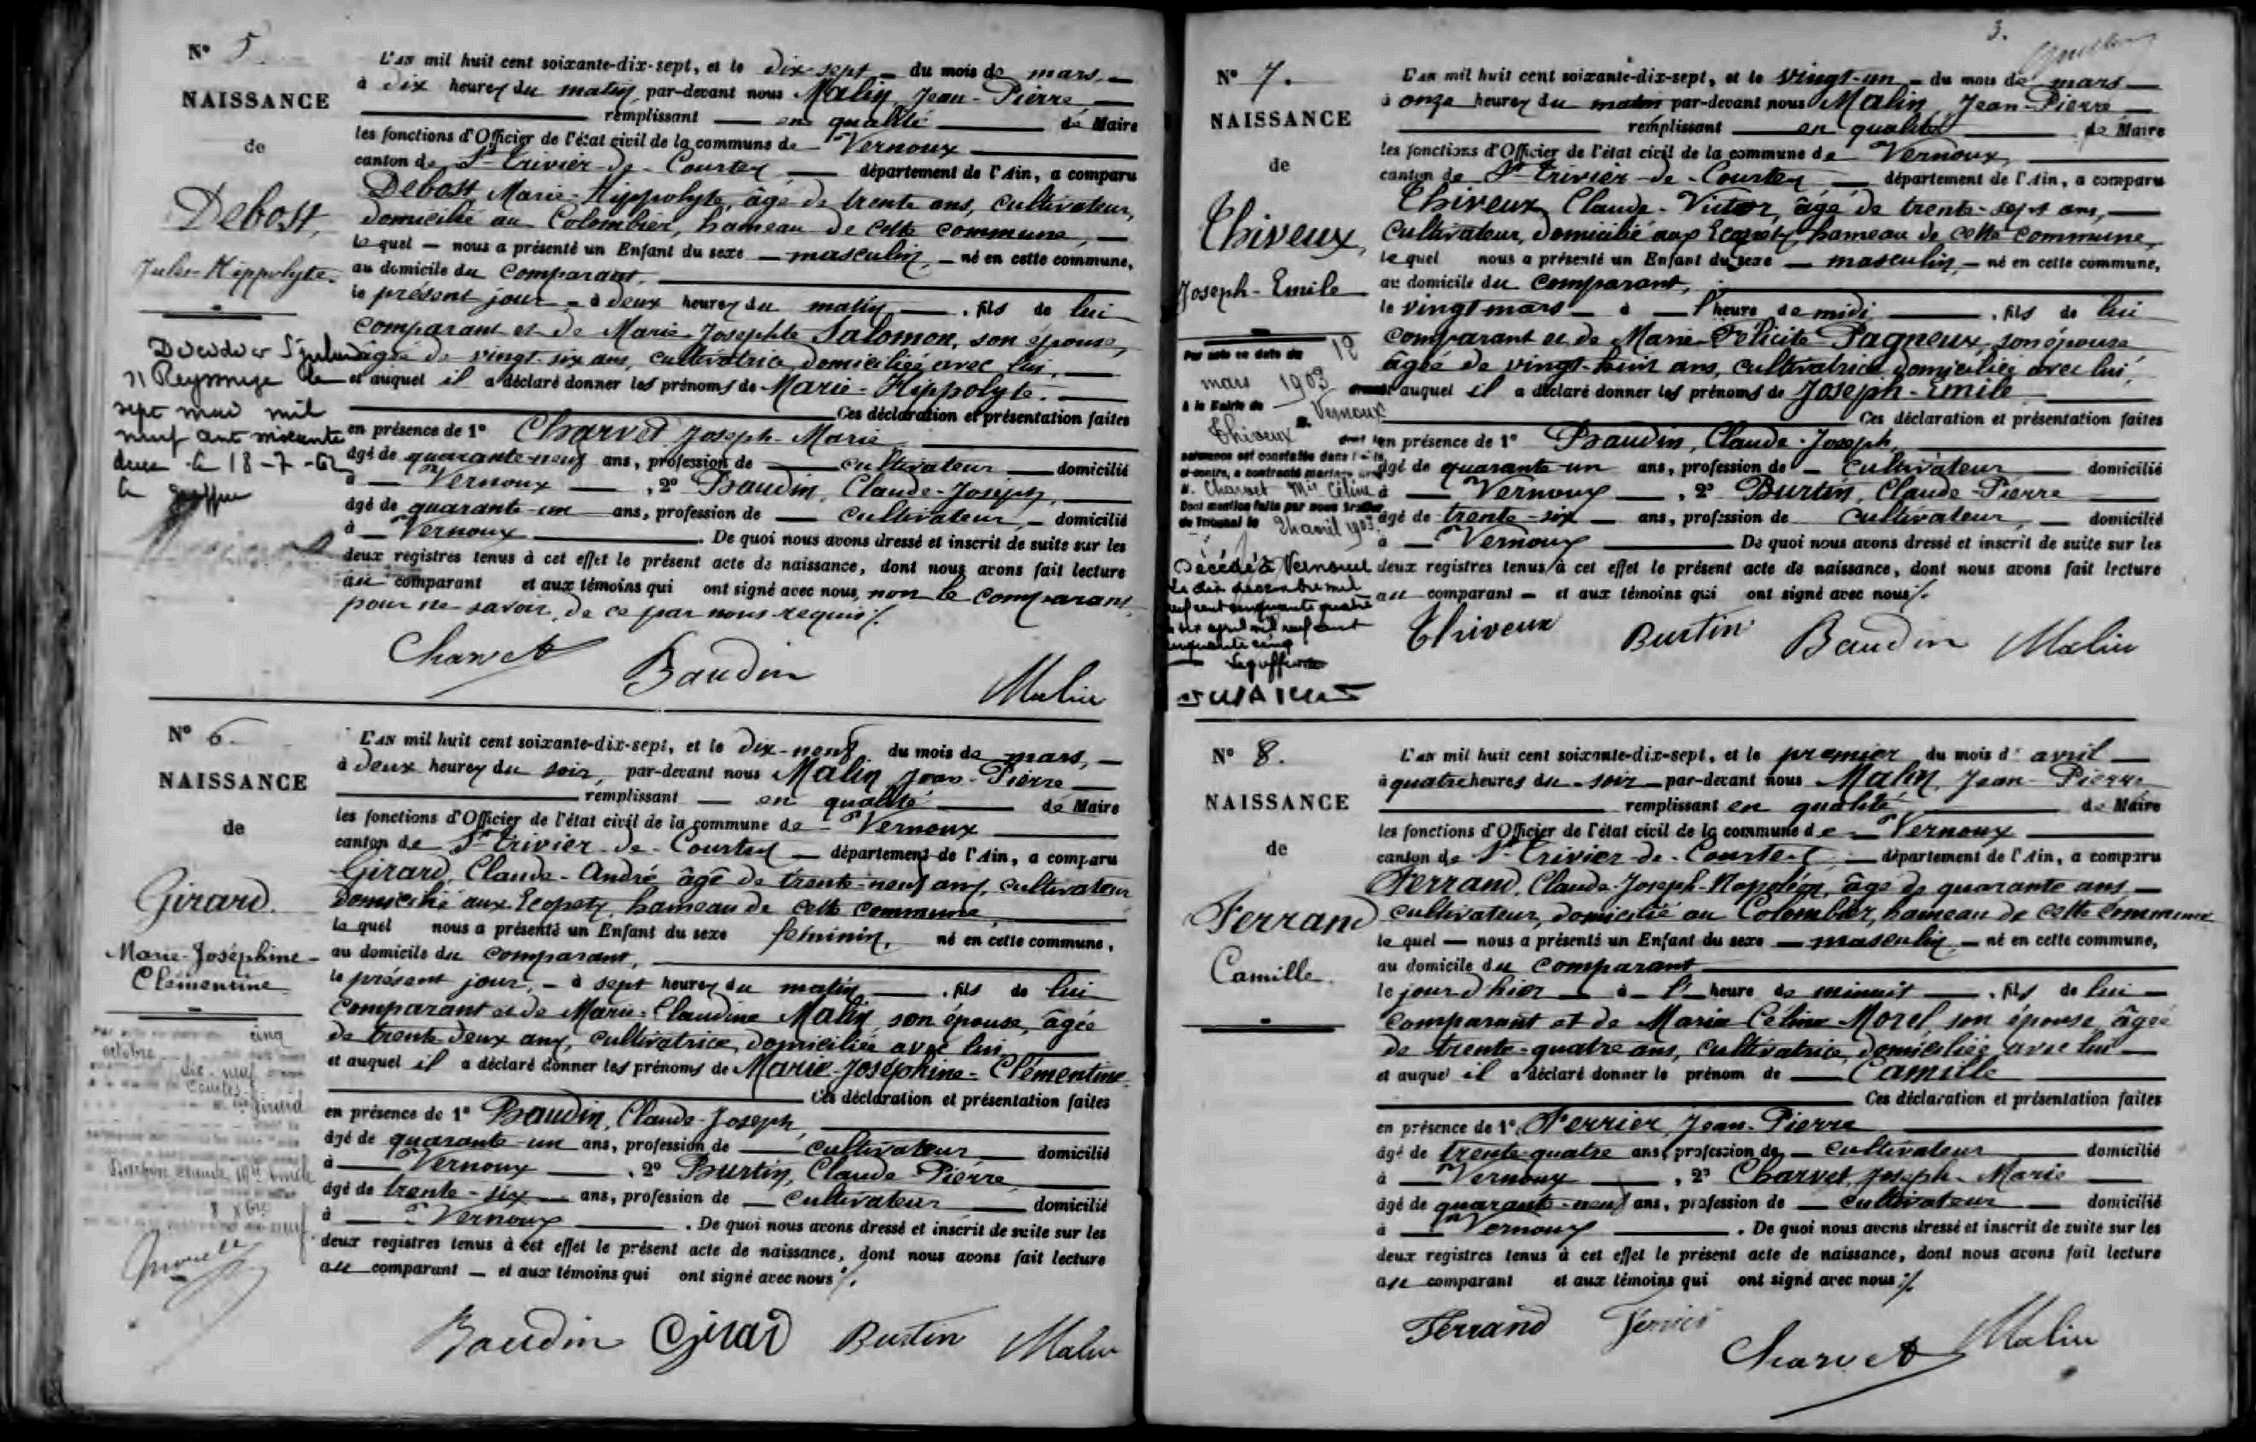 N° 5
NAISSANCE
de
Debost,
Jules-Hippolyte.
Décédé à St Julien
s/ Reyssouze le
sept mai mil
neuf cent soixante
deux le 18-7-62
L'AN mil huit cent soixante-dix-sept, et le dix-sept du mois de mars,
à dix heures du matin, par-devant nous Malin, Jean-Pierre
remplissant en qualité de Maire
les fonctions d'Officier de l'état civil de la commune de Vernoux
canton de St Trivier-de-Courtes département de l'Ain, a comparu
Debost Marie-Hippolyte, âgé de trente ans, cultivateur,
domicilié au Colombier, hameau de cette commune,
le quel nous a présenté un Enfant du sexe masculin, né en cette commune,
au domicile du comparant,
le présent jour à deux heures du matin, fils de lui
comparant et de Marie-Josephte Salomon, son épouse,
âgée de vingt-six ans, cultivatrice, domiciliée avec lui,
et auquel il a déclaré donner les prénoms de Marie-Hippolyte.
Ces déclaration et présentation faites
en présence de 1° Charvet Joseph-Marie
âgé de quarante-neuf ans, profession de cultivateur domicilié
à Vernoux, 2° Baudin, Claude-Joseph,
âgé de quarante-un ans, profession de cultivateur, domicilié
à Vernoux. De quoi nous avons dressé et inscrit de suite sur les
deux registres tenus à cet effet le présent acte de naissance, dont nous avons fait lecture
au comparant et aux témoins qui ont signé avec nous, non le comparant
pour ne savoir, de ce par nous requis %.
Charvet
Baudin
Malin
N° 6.
NAISSANCE
de
Girard.
Marie-Joséphine-
Clémentine
cinq
octobre
dix-neuf
Courtes
Girard
L'AN mil huit cent soixante-dix-sept, et le dix-neuf du mois de mars,
à deux heures du soir, par-devant nous Malin Jean-Pierre
remplissant en qualité de Maire
les fonctions d'Officier de l'état civil de la commune de Vernoux
canton de St Trivier-de-Courtes département de l'Ain, a comparu
Girard, Claude-André âgé de trente-neuf ans, cultivateur
domicilié aux Ecopets, hameau de cette commune
le quel nous a présenté un Enfant du sexe féminin, né en cette commune,
au domicile du comparant,
le présent jour, à sept heures du matin, fils de lui
comparant et de Marie-Claudine Malin, son épouse, âgée
de trente-deux ans, cultivatrice, domiciliée avec lui
et auquel il a déclaré donner les prénoms de Marie-Joséphine-Clémentine.
Ces déclaration et présentation faites
en présence de 1° Baudin, Claude-Joseph,
âgé de quarante-un ans, profession de cultivateur domicilié
à Vernoux, 2° Burtin, Claude-Pierre
âgé de trente-six ans, profession de cultivateur domicilié
à Vernoux. De quoi nous avons dressé et inscrit de suite sur les
deux registres tenus à cet effet le présent acte de naissance, dont nous avons fait lecture
au comparant et aux témoins qui ont signé avec nous %.
Baudin Girard Burtin Malin
3.
N° 7.
NAISSANCE
de
Thiveux,
Joseph-Emile
Par acte en date du 18
mars 1903
à la Mairie de Vernoux
M. Thiveux dont la
naissance est constatée dans l'acte
ci-contre, a contracté mariage avec
M. Charvet Mie Céline
Dont mention faite par nous Greffier
du Tribunal le 2 avril 1903
Décédé à Vernoux
le dix décembre mil
neuf cent cinquante quatre
six avril mil neuf cent
cinquante cinq
L'AN mil huit cent soixante-dix-sept, et le vingt-un du mois de mars
à onze heures du matin par-devant nous Malin, Jean-Pierre
remplissant en qualité de Maire
les fonctions d'Officier de l'état civil de la commune de Vernoux
canton de St Trivier-de-Courtes département de l'Ain, a comparu
Thiveux, Claude-Victor, âgé de trente-sept ans,
cultivateur, domicilié aux Ecopets, hameau de cette commune,
le quel nous a présenté un Enfant du sexe masculin, né en cette commune,
au domicile du comparant,
le vingt mars à l'heure de midi, fils de lui
comparant et de Marie-Félicité Pagneux, son épouse
âgée de vingt-huit ans, cultivatrice, domiciliée avec lui,
et auquel il a déclaré donner les prénoms de Joseph-Emile
Ces déclaration et présentation faites
en présence de 1° Baudin, Claude-Joseph,
âgé de quarante-un ans, profession de cultivateur domicilié
à Vernoux, 2° Burtin, Claude-Pierre
âgé de trente-six ans, profession de cultivateur, domicilié
à Vernoux De quoi nous avons dressé et inscrit de suite sur les
deux registres tenus à cet effet le présent acte de naissance, dont nous avons fait lecture
au comparant et aux témoins qui ont signé avec nous %.
Thiveux Burtin Baudin Malin
N° 8.
NAISSANCE
de
Ferrand
Camille.
L'AN mil huit cent soixante-dix-sept, et le premier du mois d'avril
à quatre heures du soir par-devant nous Malin, Jean-Pierre
remplissant en qualité de Maire
les fonctions d'Officier de l'état civil de la commune de Vernoux
canton de St Trivier-de-Courtes département de l'Ain, a comparu
Ferrand, Claude-Joseph-Napoléon, âgé de quarante ans
cultivateur, domicilié au Colombier, hameau de cette commune
le quel nous a présenté un Enfant du sexe masculin né en cette commune,
au domicile du comparant
le jour d'hier à l'heure de minuit, fils de lui
comparant et de Marie Céline Morel, son épouse âgée
de trente-quatre ans, cultivatrice, domiciliée avec lui
et auquel il a déclaré donner le prénom de Camille
Ces déclaration et présentation faites
en présence de 1° Ferrier, Jean-Pierre
âgé de trente-quatre ans, profession de cultivateur domicilié
à Vernoux, 2° Charvet, Joseph-Marie
âgé de quarante-neuf ans, profession de cultivateur domicilié
à Vernoux. De quoi nous avons dressé et inscrit de suite sur les
deux registres tenus à cet effet le présent acte de naissance, dont nous avons fait lecture
au comparant et aux témoins qui ont signé avec nous %.
Ferrand Ferrier
Charvet Malin